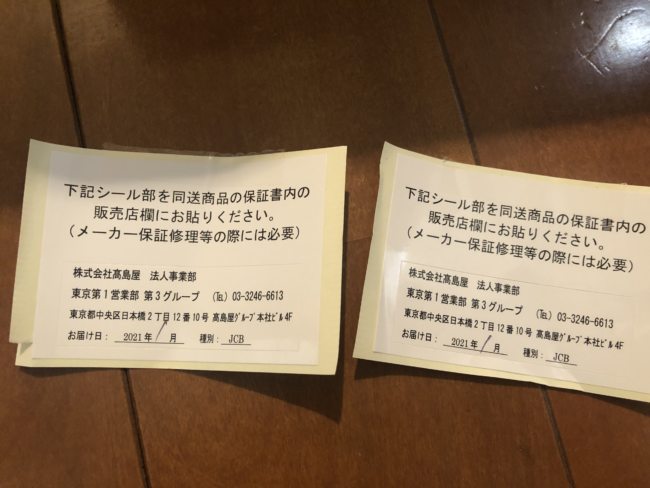 下記シール部を同送商品の保証書内の
販売店欄にお貼りください。
(メーカー保証修理等の際には必要)
株式会社髙島屋 法人事業部
東京第1営業部 第3グループ (℡) 03-3246-6613
東京都中央区日本橋2丁目12番10号 髙島屋グループ本社ビル4F
お届け日: 2021年1月 種別: JCB
下記シール部を同送商品の保証書内の
販売店欄にお貼りください。
(メーカー保証修理等の際には必要)
株式会社髙島屋 法人事業部
東京第1営業部 第3グループ (℡) 03-3246-6613
東京都中央区日本橋2丁目12番10号 髙島屋グループ本社ビル4F
お届け日: 2021年1月 種別: JCB